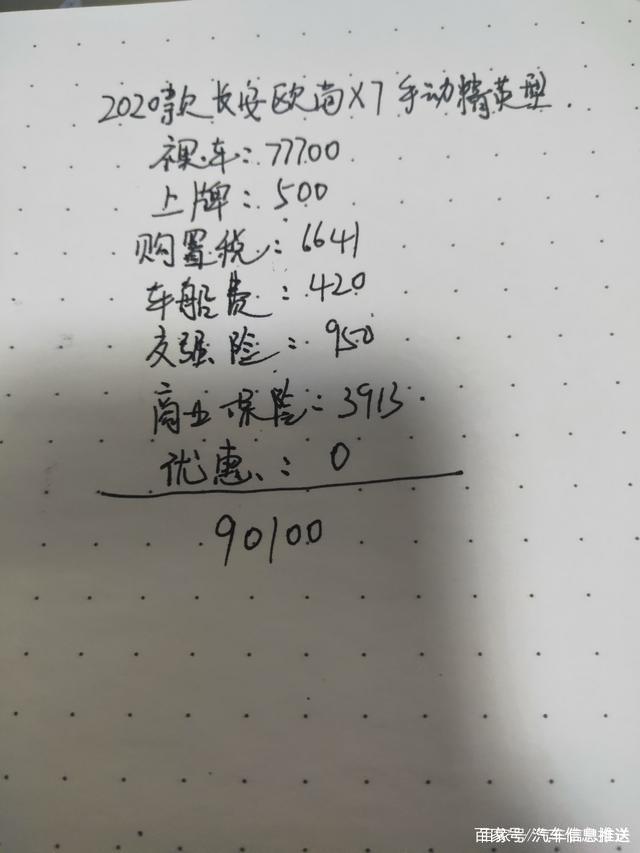 2020款长安欧尚X7手动精英型
裸车:77700
上牌:500
购置税:6641
车船费:420
交强险:950
商业保险:3913
优惠:0
90100
百家号/汽车信息推送